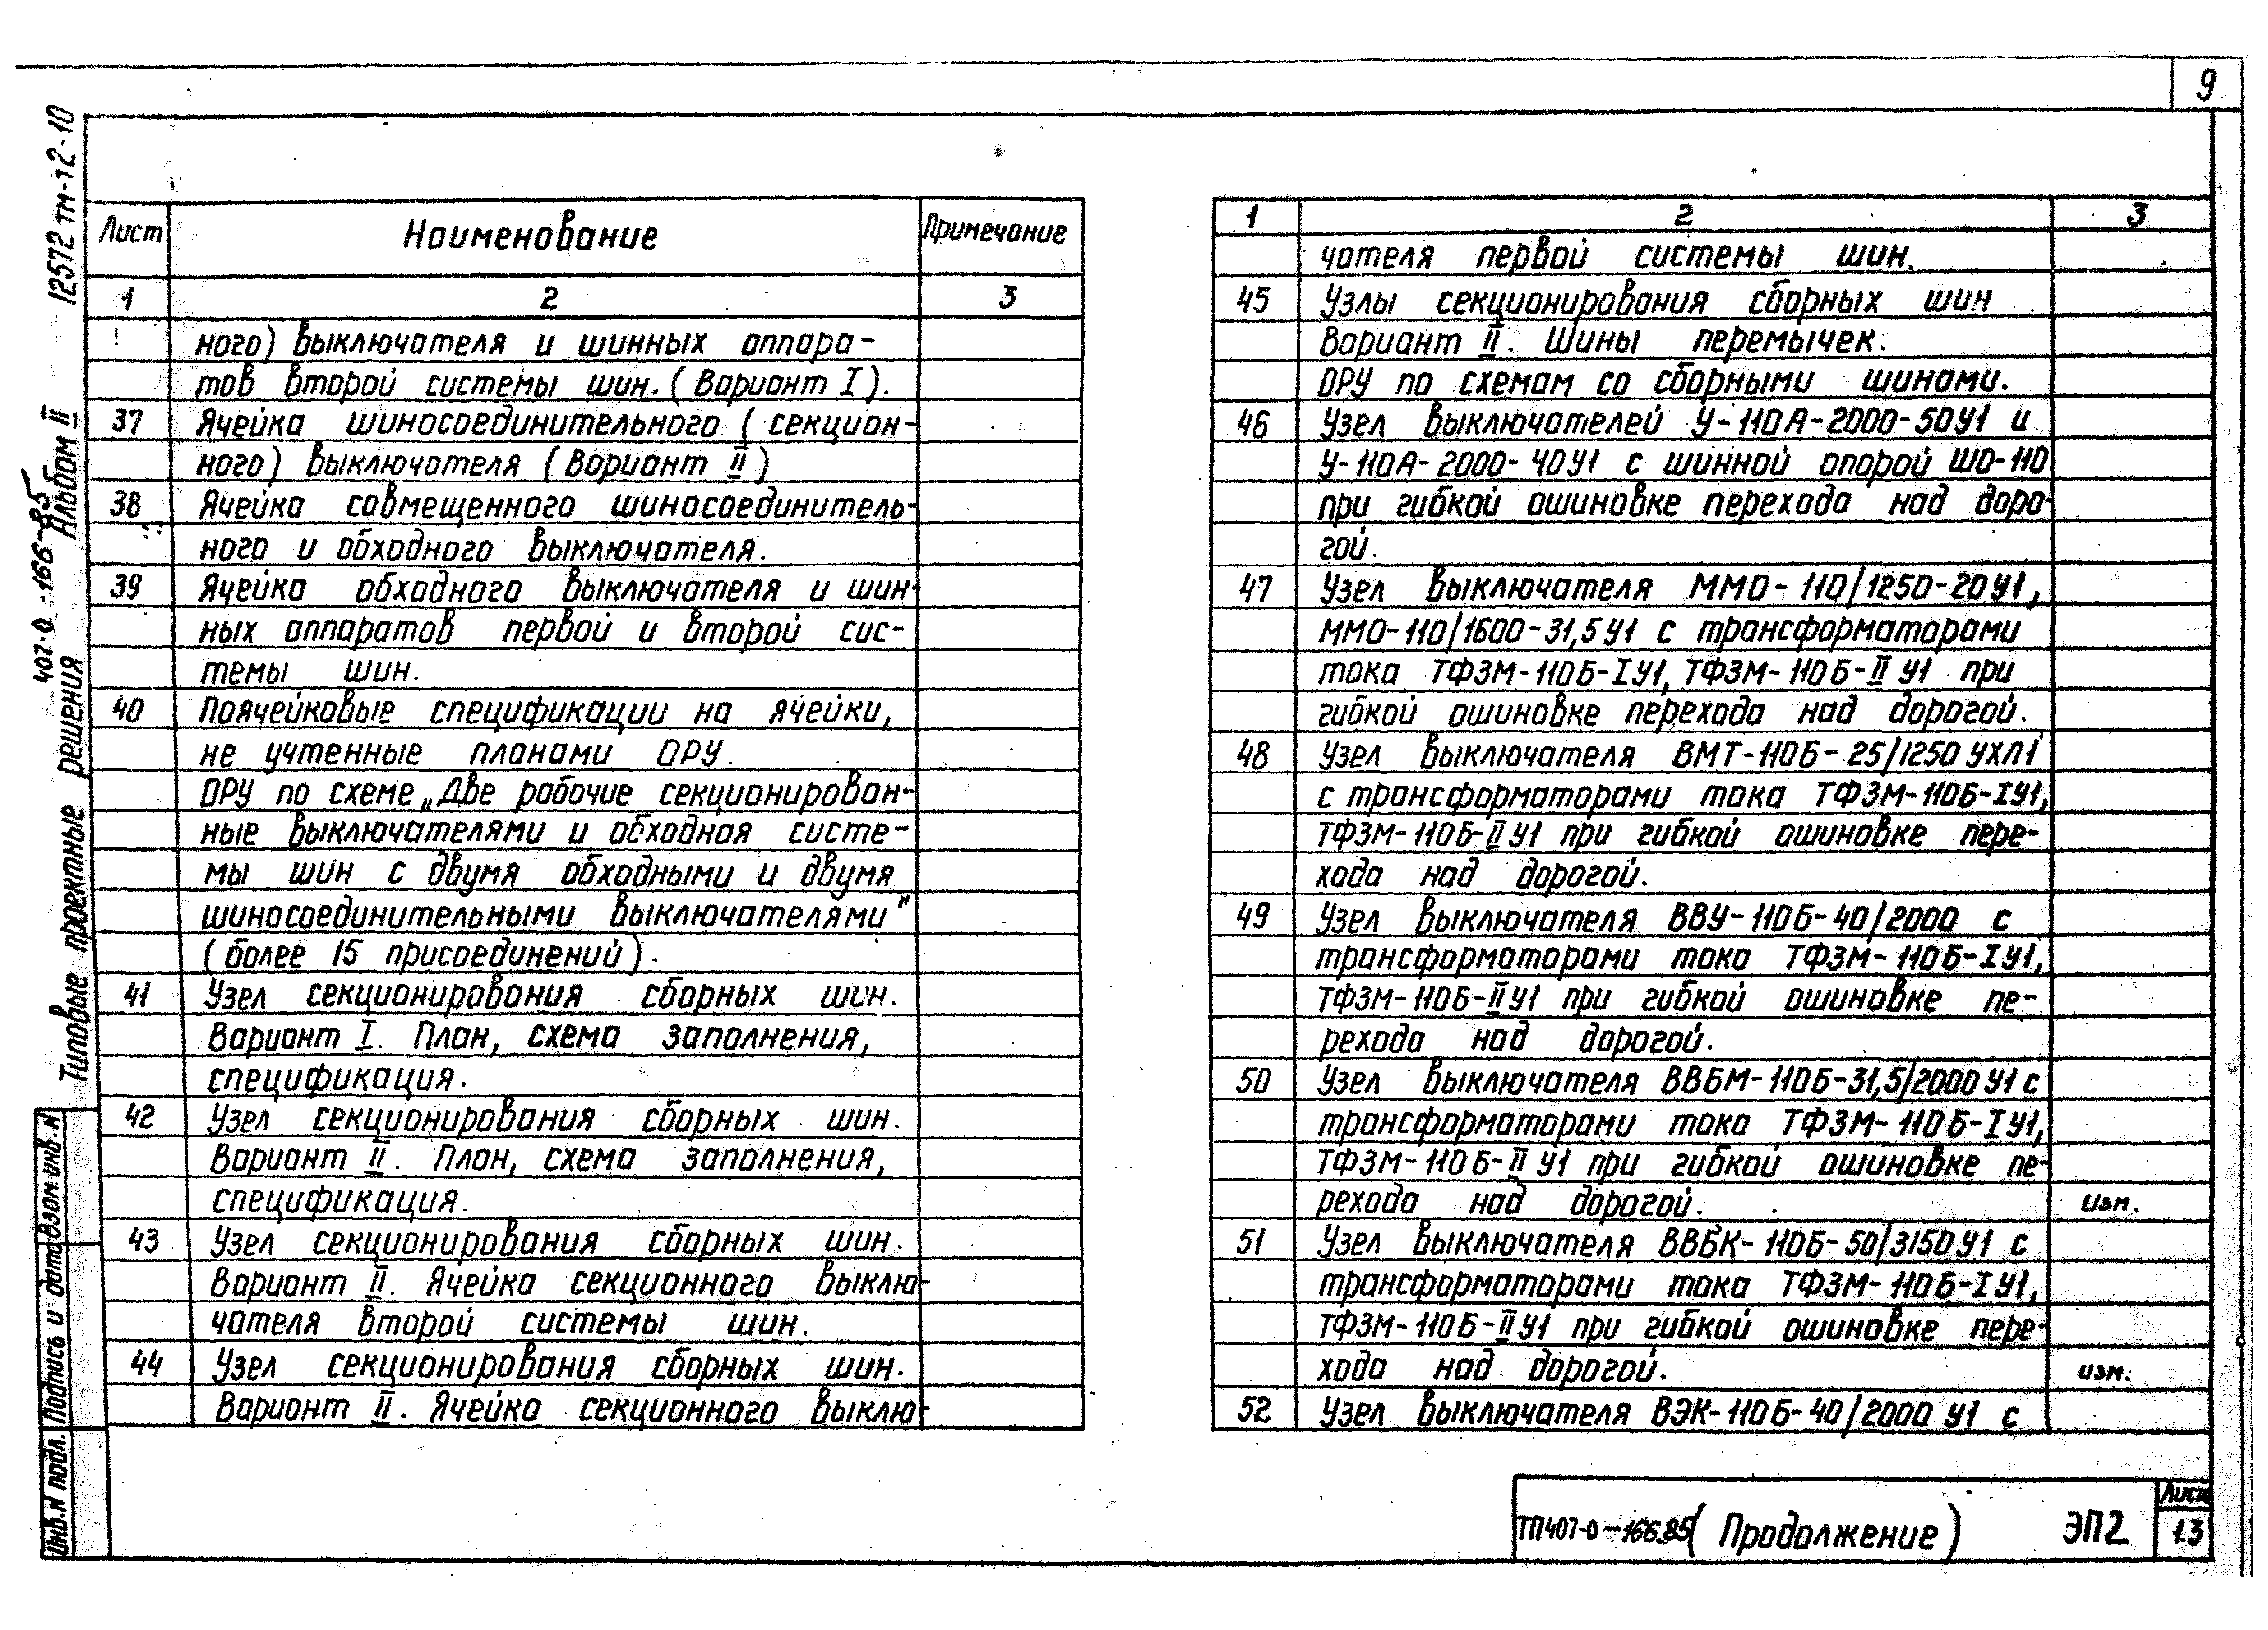 9
12572 тм-т2-10
Альбом II
407-0-166-85
Типовые проектные решения
Лист Наименование Примечание
1 2 3
ного) выключателя и шинных аппара-
тов второй системы шин. (Вариант I).
37 Ячейка шиносоединительного (секцион-
ного) выключателя (Вариант II)
38 Ячейка совмещенного шиносоединитель-
ного и обходного выключателя.
39 Ячейка обходного выключателя и шин-
ных аппаратов первой и второй сис-
темы шин.
40 Поячейковые спецификации на ячейки,
не учтенные планами ОРУ.
ОРУ по схеме „Две рабочие секционирован-
ные выключателями и обходная систе-
мы шин с двумя обходными и двумя
шиносоединительными выключателями"
(более 15 присоединений).
41 Узел секционирования сборных шин.
Вариант I. План, схема заполнения,
спецификация.
42 Узел секционирования сборных шин.
Вариант II. План, схема заполнения,
спецификация.
43 Узел секционирования сборных шин.
Вариант II. Ячейка секционного выклю-
чателя второй системы шин.
44 Узел секционирования сборных шин.
Вариант II. Ячейка секционного выклю-
1 2 3
чателя первой системы шин.
45 Узлы секционирования сборных шин
Вариант II. Шины перемычек.
ОРУ по схемам со сборными шинами.
46 Узел выключателей У-110А-2000-50У1 и
У-110А-2000-40У1 с шинной опорой ШО-110
при гибкой ошиновке перехода над доро-
гой.
47 Узел выключателя ММО-110/1250-20У1,
ММО-110/1600-31,5У1 с трансформаторами
тока ТФЗМ-110Б-IУ1, ТФЗМ-110Б-II У1 при
гибкой ошиновке перехода над дорогой.
48 Узел выключателя ВМТ-110Б-25/1250 УХЛ1
с трансформаторами тока ТФЗМ-110Б-IУ1,
ТФЗМ-110Б-IIУ1 при гибкой ошиновке пере-
хода над дорогой.
49 Узел выключателя ВВУ-110Б-40/2000 с
трансформаторами тока ТФЗМ-110Б-IУ1,
ТФЗМ-110Б-IIУ1 при гибкой ошиновке пе-
рехода над дорогой.
50 Узел выключателя ВВБМ-110Б-31,5/2000 У1 с
трансформаторами тока ТФЗМ-110Б-IУ1,
ТФЗМ-110Б-II У1 при гибкой ошиновке пе-
рехода над дорогой. изм.
51 Узел выключателя ВВБК-110Б-50/3150У1 с
трансформаторами тока ТФЗМ-110Б-IУ1,
ТФЗМ-110Б-IIУ1 при гибкой ошиновке пере-
хода над дорогой. изм.
52 Узел выключателя ВЭК-110Б-40/2000 У1 с
Взам.инв.N
Подпись и дата
Инв.N подл.
ТП407-0-166.85 (Продолжение) ЭП2
Лист
1.3